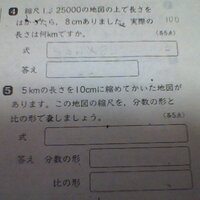 4 縮尺1:25000の地図の上で長さを
はかったら、8cmありました。実際の
長さは何kmですか。 (各5点)
式
答え
5 5kmの長さを10cmに縮めてかいた地図が
あります。この地図の縮尺を、分数の形と
比の形で表しましょう。 (各5点)
式
答え 分数の形
比の形